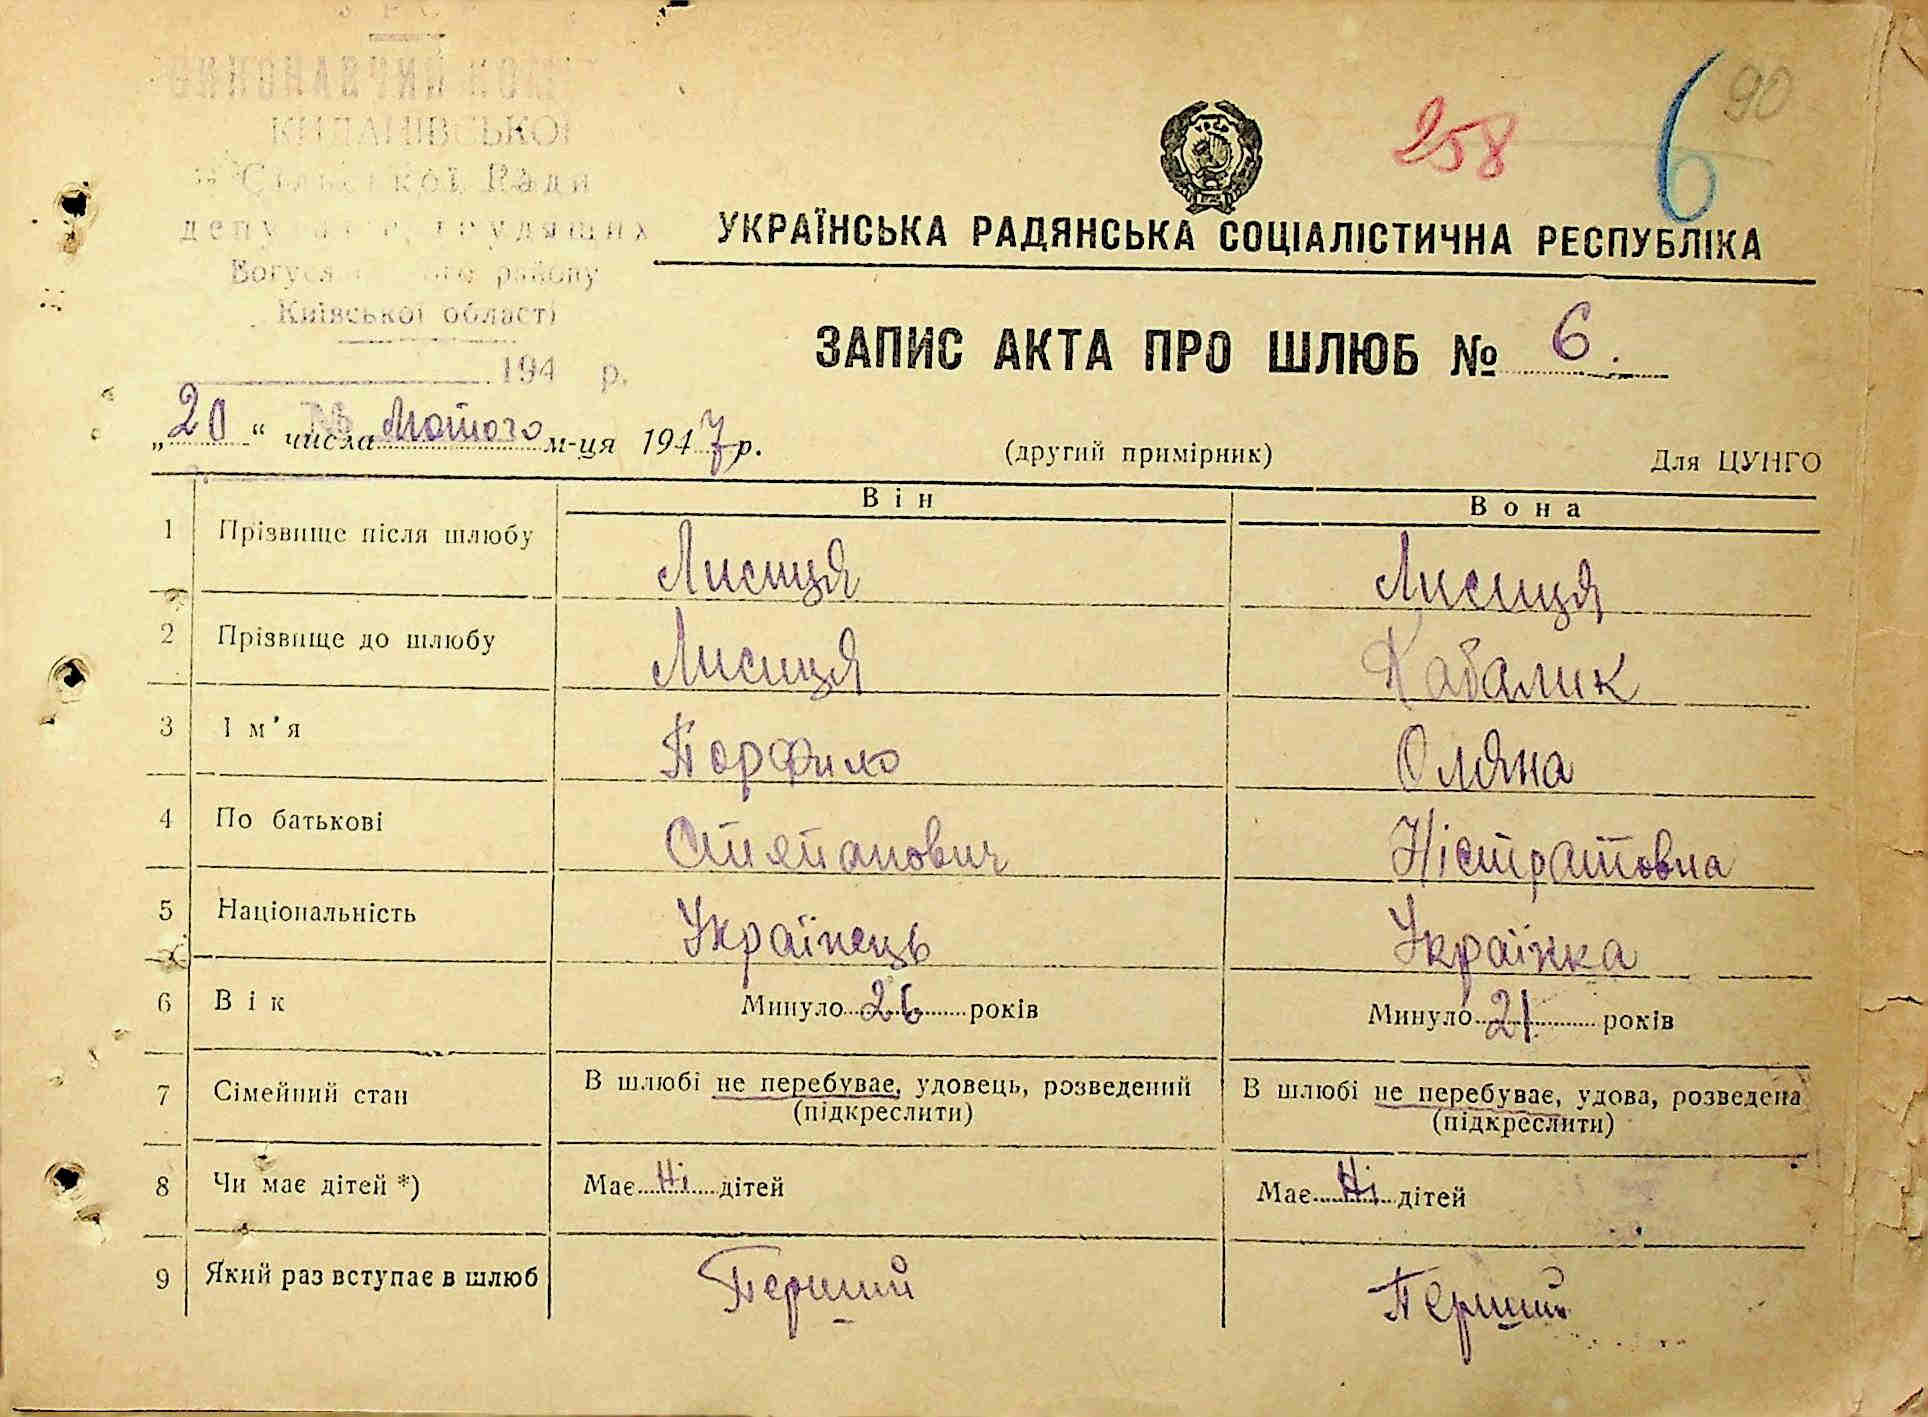 258 6 90
КИДАНІВСЬКОЇ
Сільської Ради
депутатів трудящих
району
Київської області
194 р.
УКРАЇНСЬКА РАДЯНСЬКА СОЦІАЛІСТИЧНА РЕСПУБЛІКА
ЗАПИС АКТА ПРО ШЛЮБ № 6.
„20“ числа Лютого м-ця 1947 р.
(другий примірник)
Для ЦУНГО
Він Вона
1 Прізвище після шлюбу Лисиця Лисиця
2 Прізвище до шлюбу Лисиця Кабалик
3 Ім'я Порфило Оляна
4 По батькові Степанович Ністратовна
5 Національність Українець Українка
6 Вік Минуло 26 років Минуло 21 років
7 Сімейний стан В шлюбі не перебуває, удовець, розведений В шлюбі не перебуває, удова, розведена
(підкреслити) (підкреслити)
8 Чи має дітей *) Має Ні дітей Має Ні дітей
9 Який раз вступає в шлюб Перший Перший